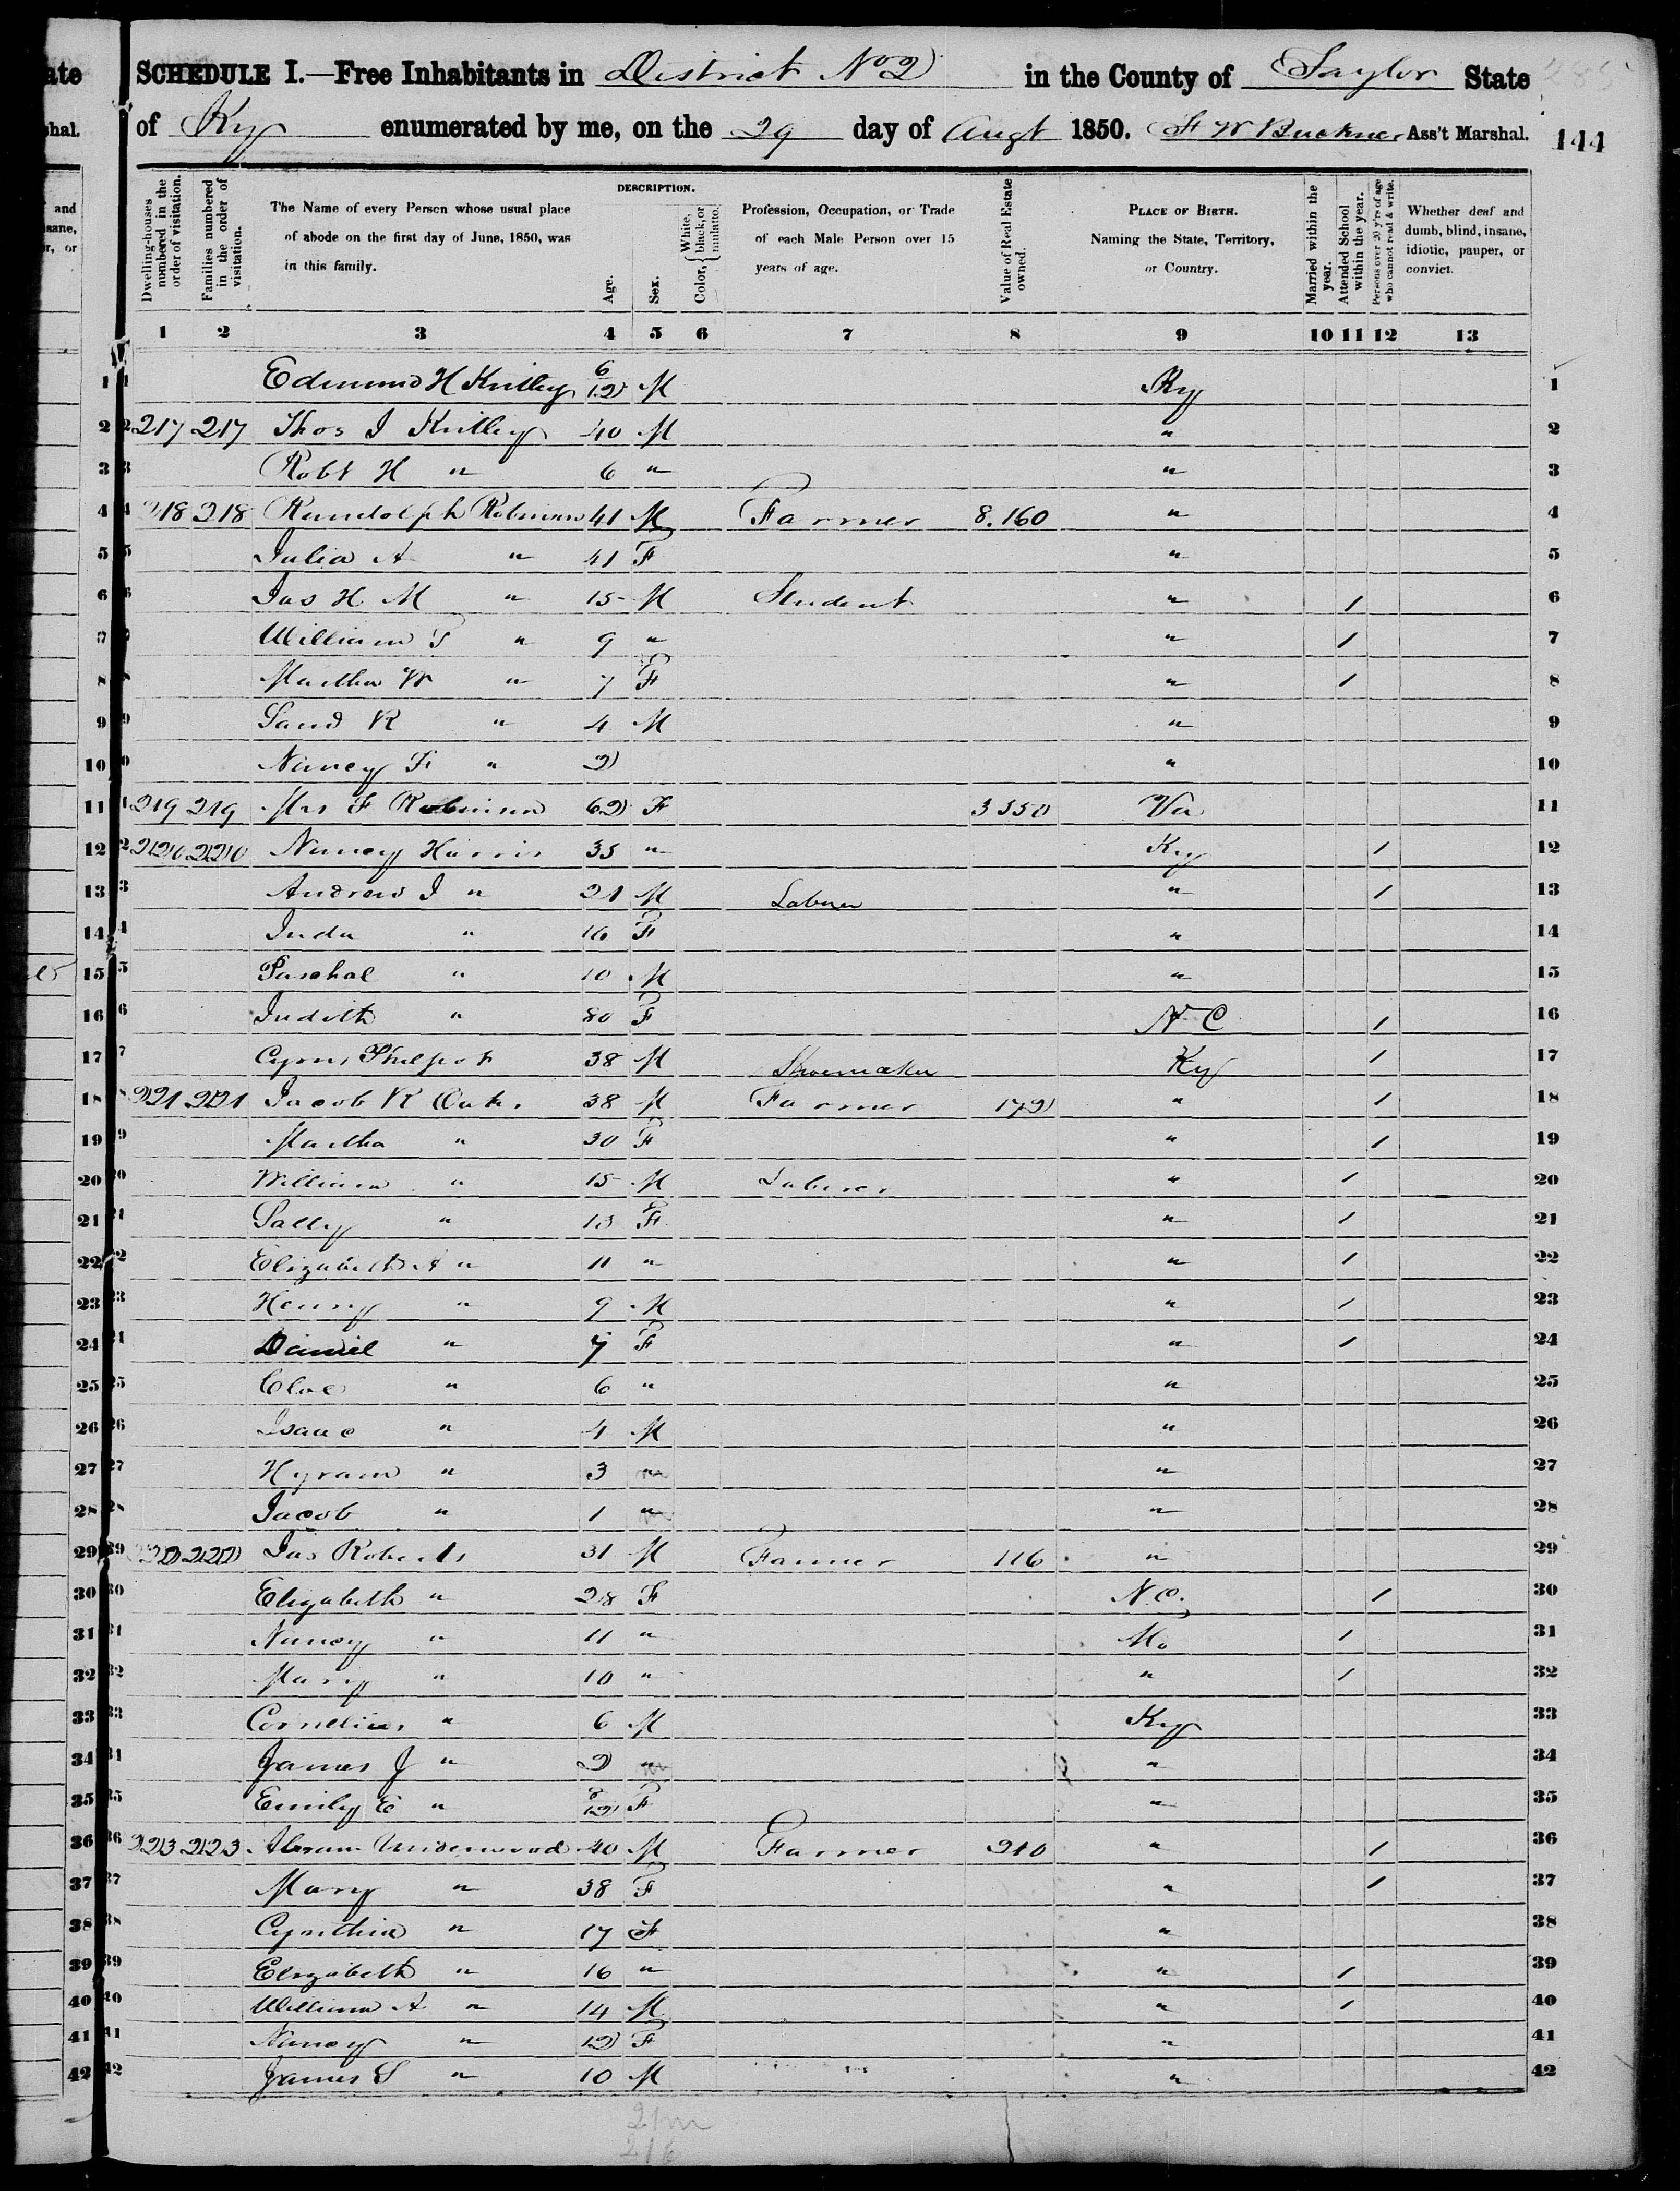 ate
shal.
285
SCHEDULE I.—Free Inhabitants in District No 2 in the County of Taylor State
of Ky enumerated by me, on the 29 day of Augt 1850. Buckner Ass't Marshal. 144
Dwelling-houses numbered in the order of visitation.
Families numbered in the order of visitation.
The Name of every Person whose usual place of abode on the first day of June, 1850, was in this family.
DESCRIPTION.
Age.
Sex.
Color, { White, black, or mulatto.
Profession, Occupation, or Trade of each Male Person over 15 years of age.
Value of Real Estate owned.
PLACE OF BIRTH. Naming the State, Territory, or Country.
Married within the year.
Attended School within the year.
Persons over 20 y'rs of age who cannot read & write.
Whether deaf and dumb, blind, insane, idiotic, pauper, or convict.
1 2 3 4 5 6 7 8 9 10 11 12 13
1 Edmund H 6/12 M Ky 1
2 217 217 Thos J 40 M " 2
3 Robt H " 6 " " 3
4 218 218 Randolph Robinson 41 M Farmer 8.160 " 4
5 Julia A " 41 F " 5
6 Jas H M " 15 M Student " / 6
7 William " 9 " " / 7
8 Martha W " 7 F " / 8
9 R " 4 M " 9
10 Nancy F " 2 " 10
11 219 219 Mrs F Robinson 62 F 3550 Va 11
12 220 220 Nancy Harris 35 " Ky / 12
13 Andrew J " 21 M Laborer " / 13
14 Juda " 16 F " 14
15 Paschal " 10 M " 15
16 Judith " 80 F N C / 16
17 Cyrus Philpot 38 M Shoemaker Ky / 17
18 221 221 Jacob R Oaks 38 M Farmer 172 " / 18
19 Martha " 30 F " / 19
20 William " 15 M Laborer " / 20
21 Sally " 13 F " / 21
22 Elizabeth A " 11 " " / 22
23 Henry " 9 M " / 23
24 Daniel " 7 F " / 24
25 Cloe " 6 " " 25
26 Isaac " 4 M " 26
27 Hyram " 3 " " 27
28 Jacob " 1 " " 28
29 222 222 Jas Roberts 31 M Farmer 116 " 29
30 Elizabeth " 28 F N.C. / 30
31 Nancy " 11 " Mo / 31
32 Mary " 10 " " / 32
33 Cornelius " 6 M Ky 33
34 James J " 2 " " 34
35 Emily E " 8/12 F " 35
36 223 223 Abram Underwood 40 M Farmer 210 " / 36
37 Mary " 38 F " / 37
38 Cynthia " 17 F " 38
39 Elizabeth " 16 " " / 39
40 William A " 14 M " / 40
41 Nancy " 12 F " 41
42 James S " 10 M " 42
21m
216